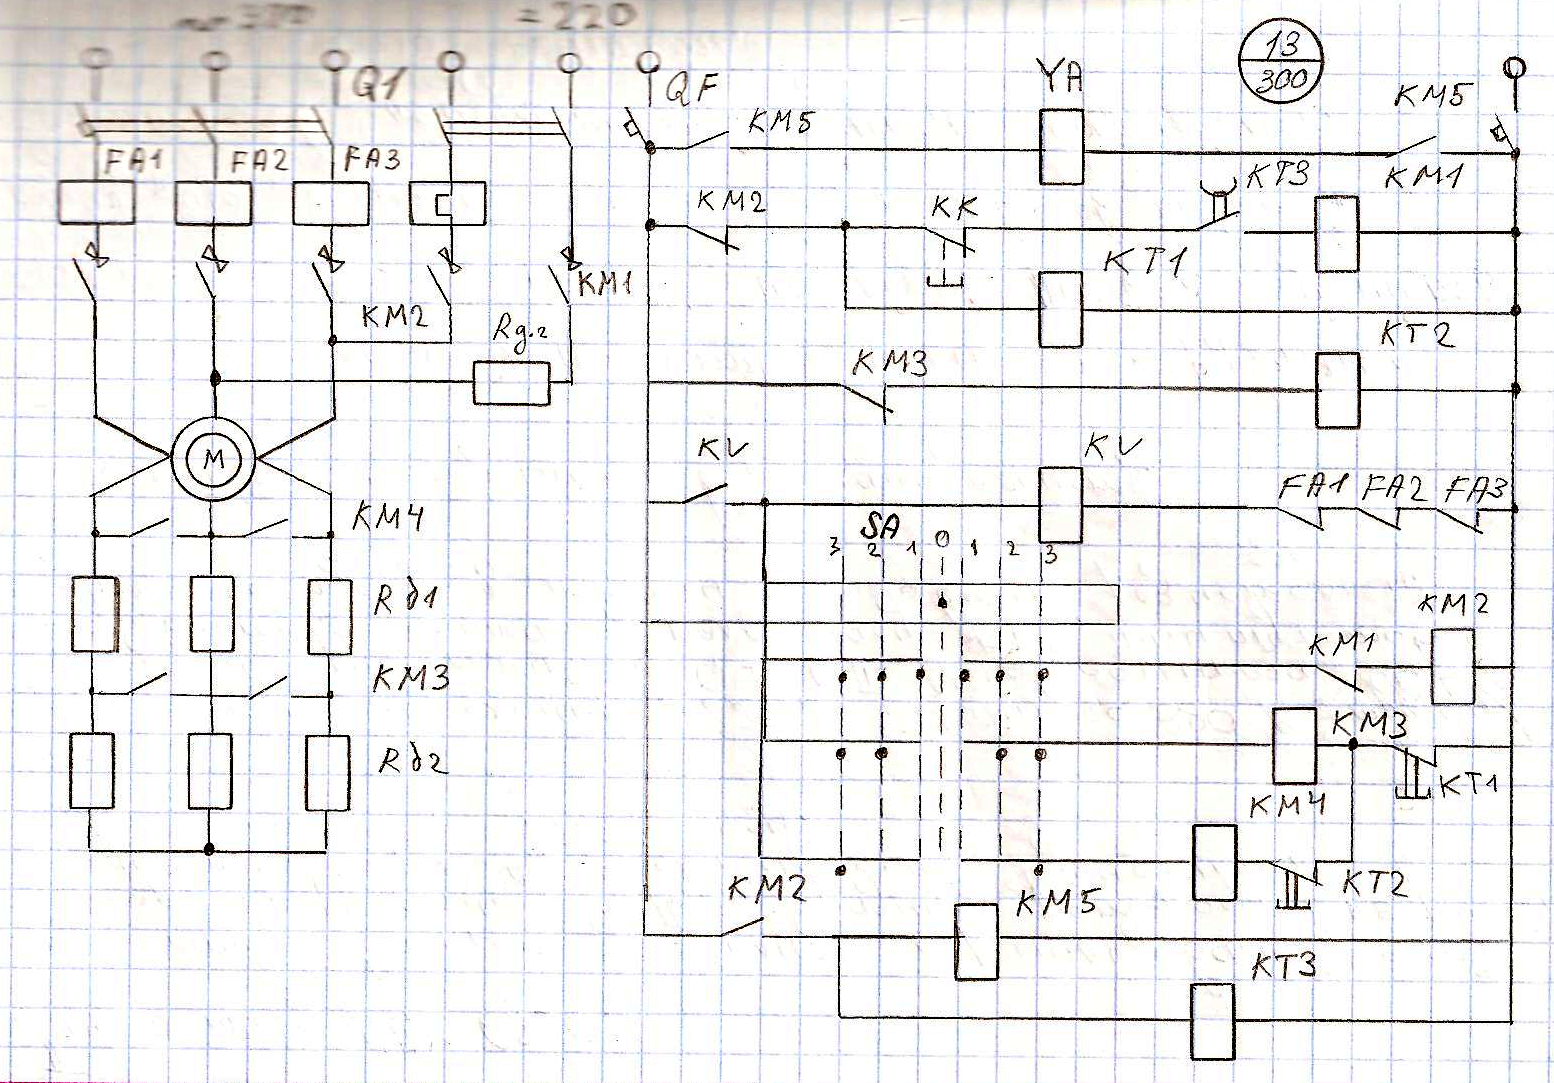 ~ 380
= 220
Q1
QF
YA
13
300
KM5
KM5
FA1
FA2
FA3
KM2
KK
KT3
KM1
KM1
KT1
KM2
Rд.т
KT2
KM3
M
KV
KV
FA1
FA2
FA3
KM4
SA
3 2 1 0 1 2 3
Rд1
KM2
KM1
KM3
KM3
Rд2
KT1
KM4
KM2
KM5
KT2
KT3